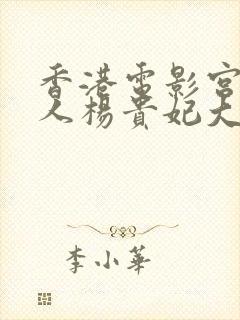 香港電影宮
人楊貴妃大
李小華